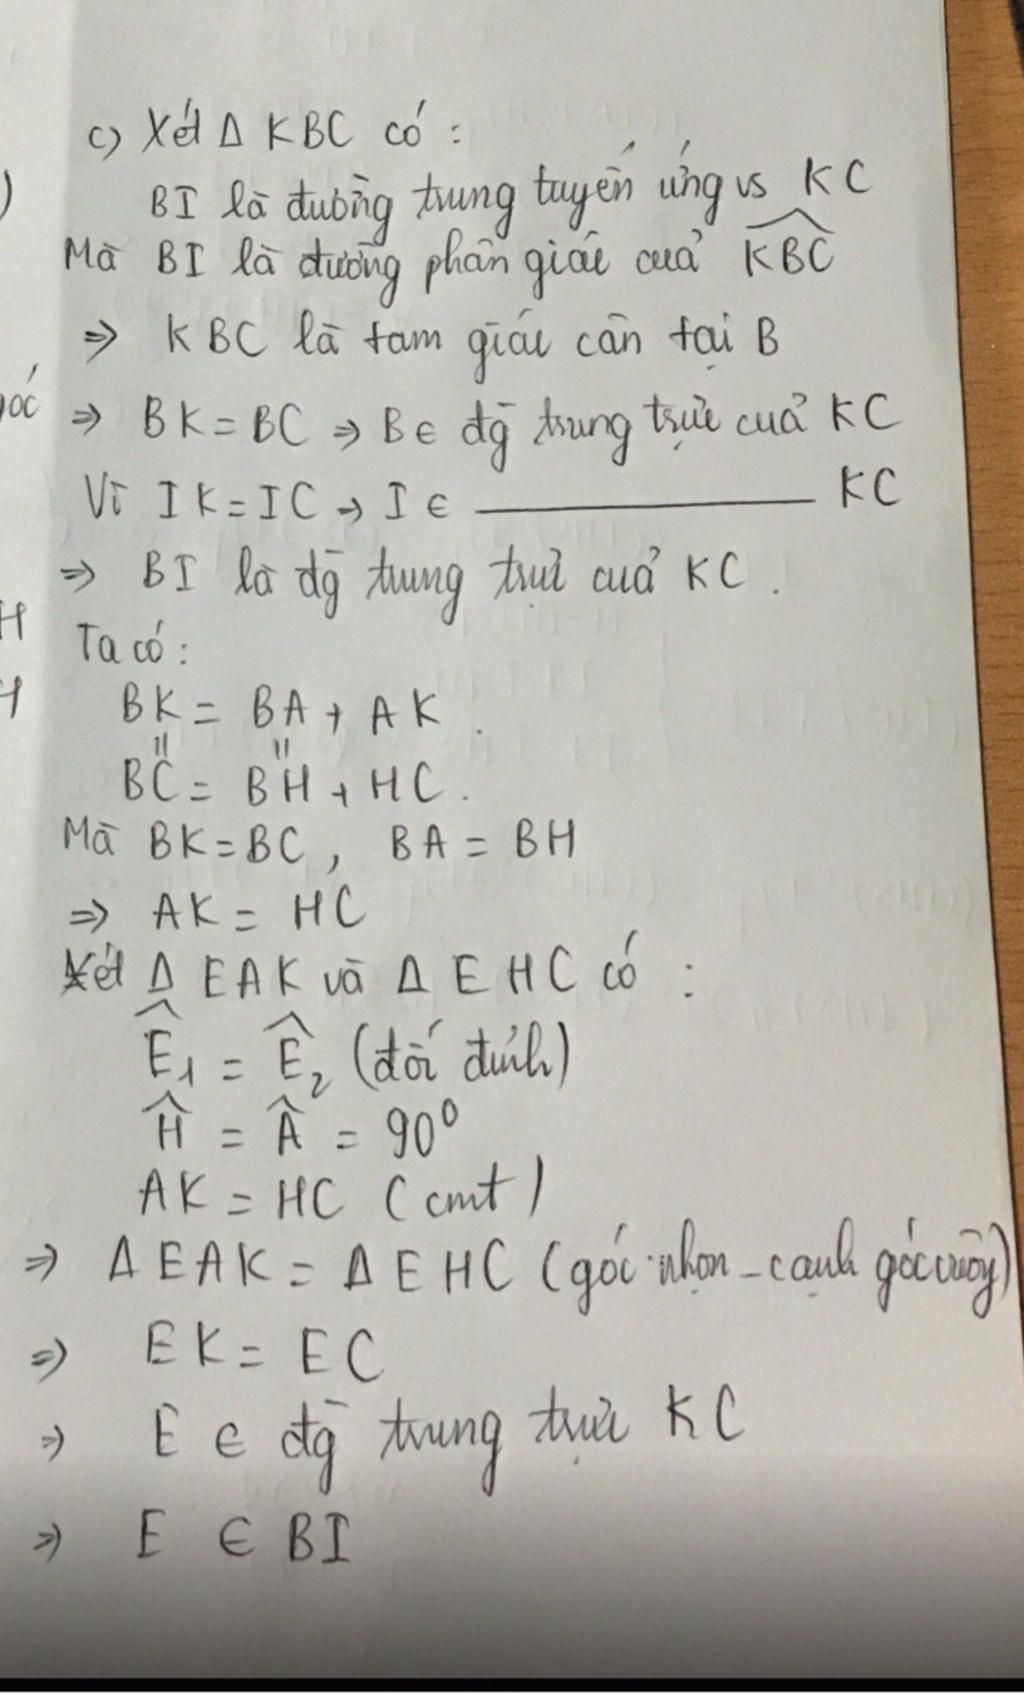 c) Xét Δ KBC có :
BI là đường trung tuyến ứng vs KC
Mà BI là đường phân giác của \widehat{KBC}
⇒ KBC là tam giác cân tại B
⇒ BK = BC ⇒ B ∈ đg trung trực của KC
Vì IK = IC → I ∈ ———— KC
⇒ BI là đg trung trực của KC .
Ta có :
BK = BA + AK .
BC = BH + HC .
Mà BK = BC , BA = BH
⇒ AK = HC
Xét Δ EAK và Δ EHC có :
\widehat{E}₁ = \widehat{E}₂ (đối đỉnh)
\widehat{H} = \widehat{A} = 90⁰
AK = HC (cmt)
⇒ Δ EAK = Δ EHC (góc nhọn - cạnh góc vuông)
⇒ EK = EC
⇒ E ∈ đg trung trực KC
⇒ E ∈ BI
góc
H